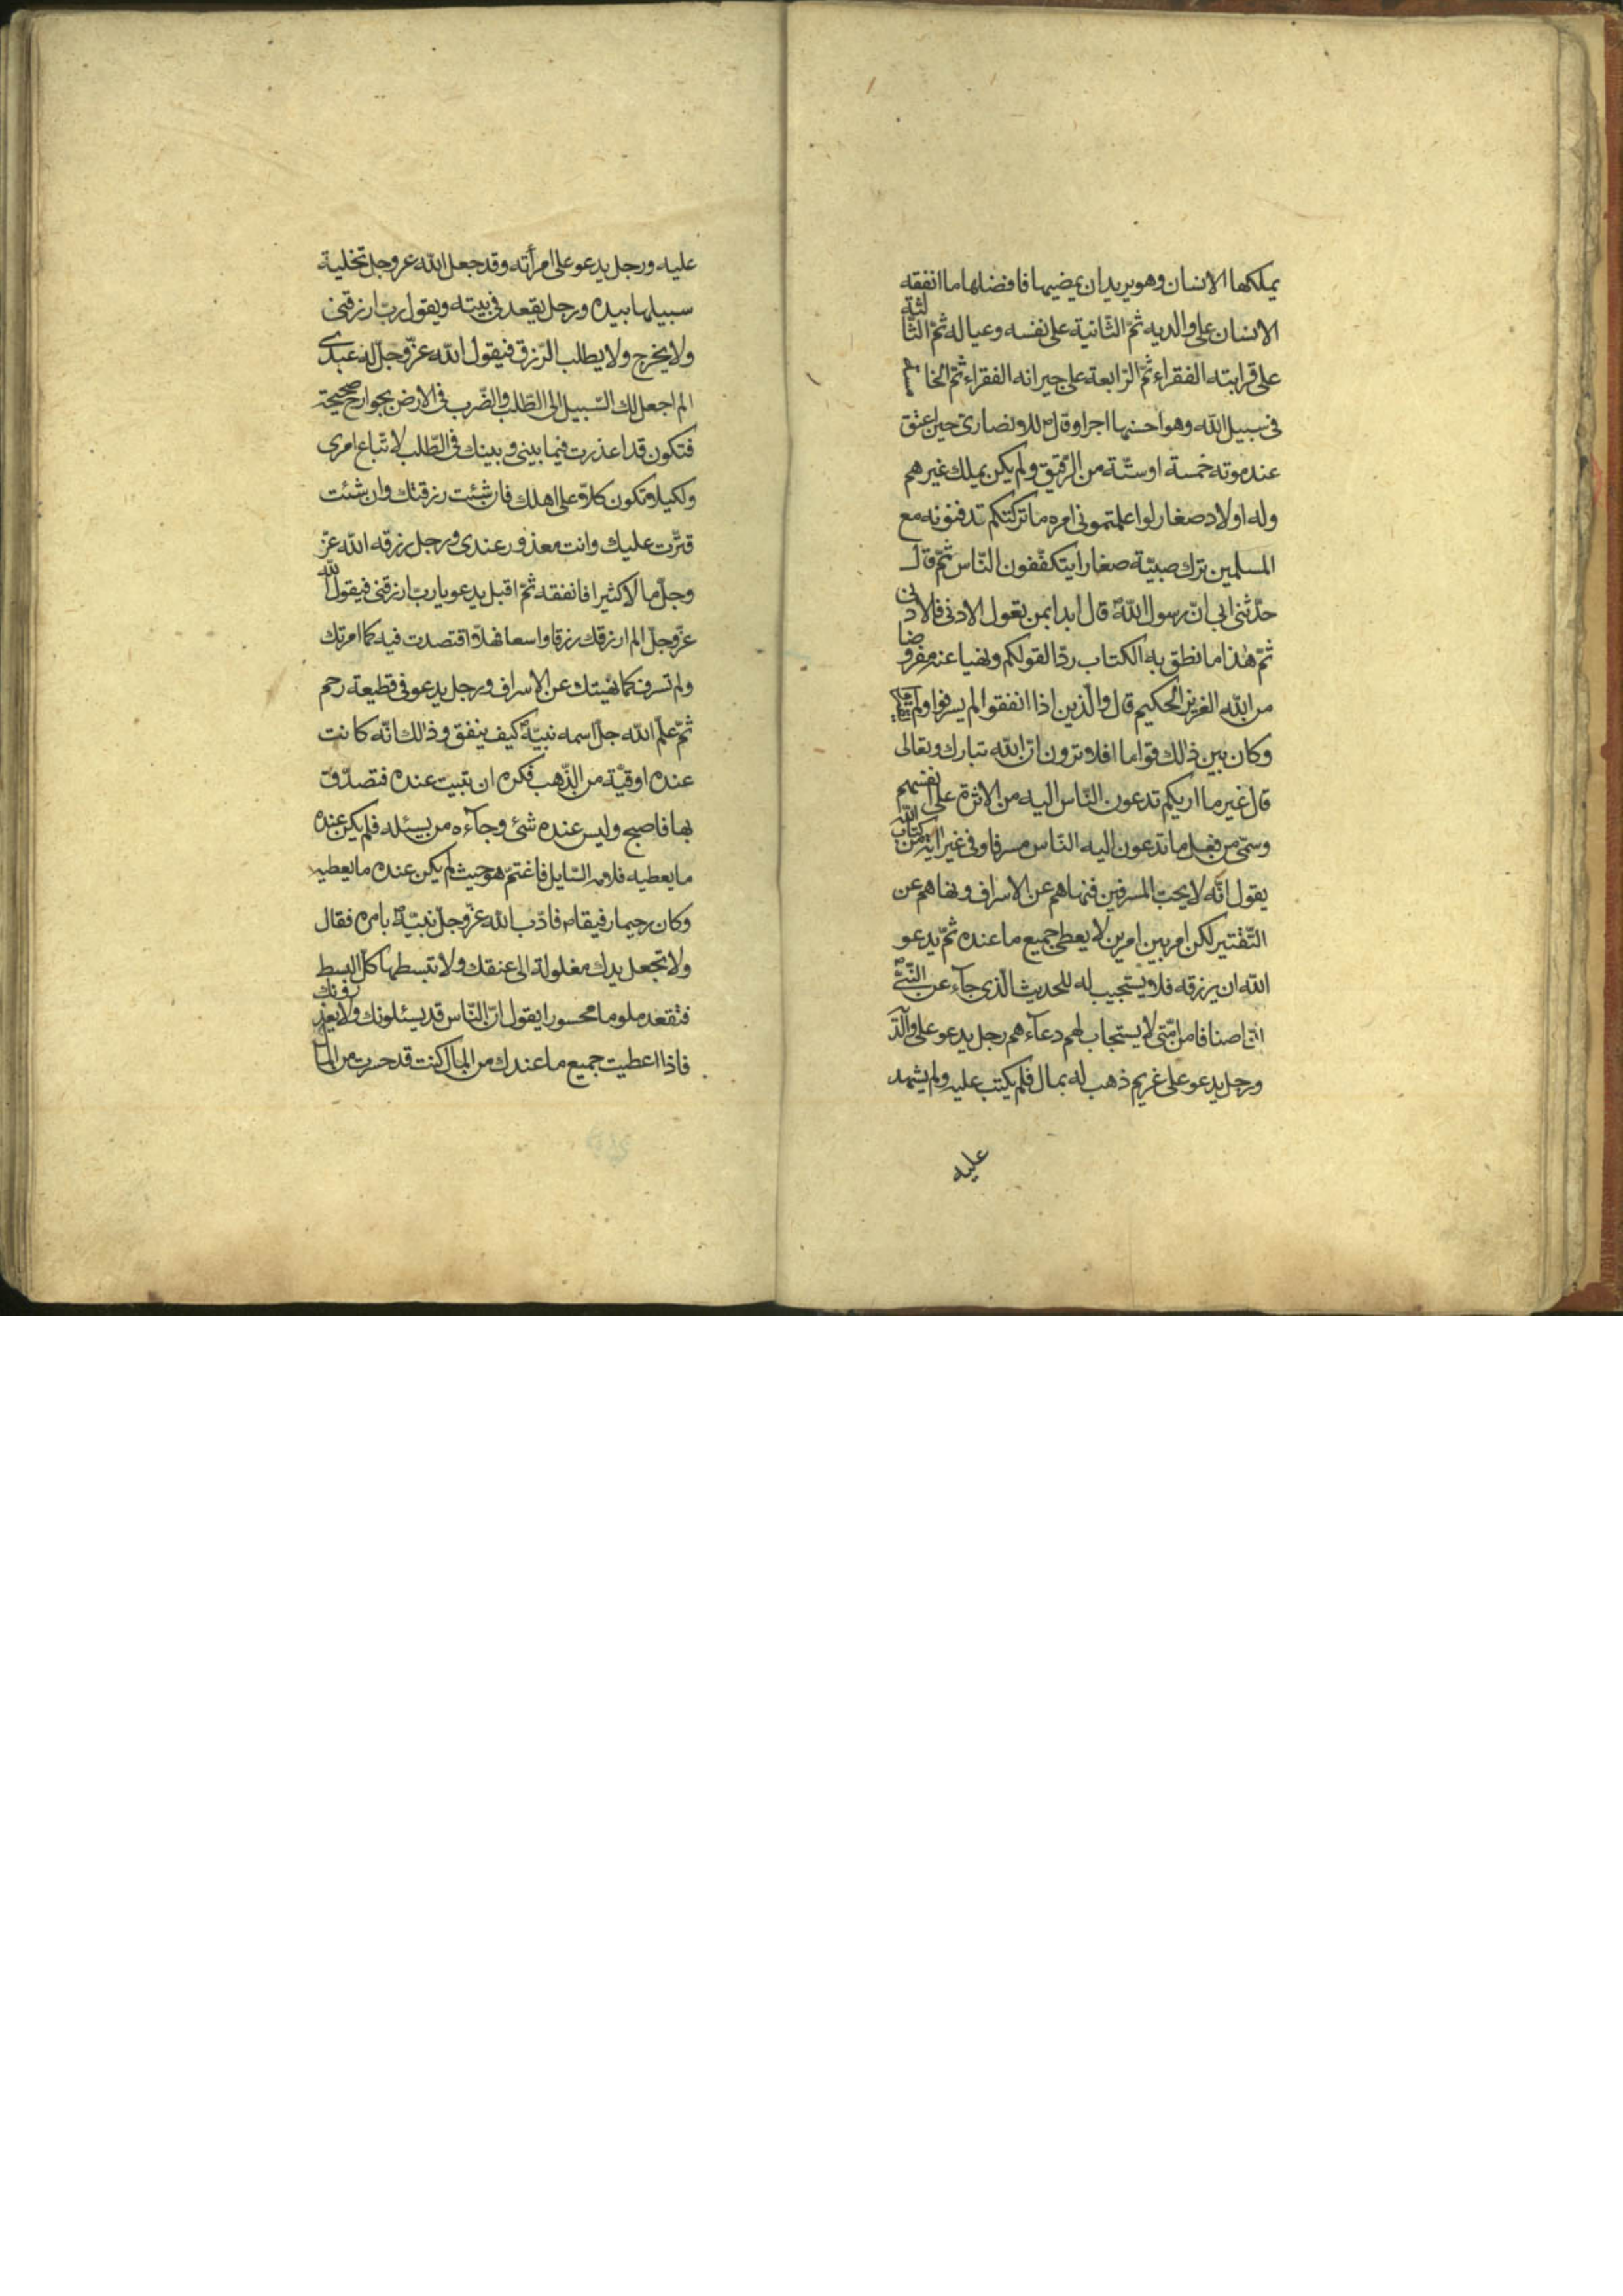 يملكها الانسان وهو يريد ان يمضيها فافضلها ما انفقه
الانسان على والديه ثمّ الثّانية على نفسه وعياله ثمّ الثّالثة
على قرابته الفقراء ثمّ الرّابعة على جيرانه الفقراء ثمّ الخامسة
فى سبيل الله وهو احسنها اجرا وقال للانصارىّ حين اعتق
عند موته خمسة او ستّة من الرّقيق ولم يكن يملك غيرهم
وله اولاد صغار لو اعلمتمونى امره ما تركتكم تدفنونه مع
المسلمين ترك صبيّة صغارا يتكفّفون النّاس ثمّ قال
حدّثنى ابى انّ رسول الله ص قال ابدا بمن تعول الادنى فالادنى
ثمّ هذا ما نطق به الكتاب ردّا لقولكم ونهيا عنه مفروضا
من الله العزيز الحكيم قال والّذين اذا انفقوا لم يسرفوا ولم يقتروا
وكان بين ذلك قواما افلا ترون انّ الله تبارك وتعالى
قال غير ما اريكم تدعون النّاس اليه من الاثرة على انفسهم
وسمّى من فعل ما تدعون اليه النّاس مسرفا وفى غير اية من كتاب الله
يقول انّه لا يحبّ المسرفين فنهاهم عن الاسراف ونهاهم عن
التّقتير لكن امر بين امرين لا يعطى جميع ما عنده ثمّ يدعو
الله ان يرزقه فلا يستجيب له للحديث الّذى جآء عن النّبىّ ص
انّ اصنافا من امّتى لا يستجاب لهم دعآءهم رجل يدعو على والد
ورجل يدعو على غريم ذهب له بمال فلم يكتب عليه ولم يشهد
عليه
عليه ورجل يدعو على امرأته وقد جعل الله عز وجل تخلية
سبيلها بيده ورجل يقعد فى بيته ويقول ربّ ارزقنى
ولا يخرج ولا يطلب الرّزق فيقول الله عزّ وجلّ له عبدى
الم اجعل لك السّبيل الى الطّلب والضّرب فى الارض بجوارح صحيحة
فتكون قد اعذرت فيما بينى وبينك فى الطّلب لاتّباع امرى
ولكيلا تكون كلا على اهلك فان شئت رزقتك وان شئت
قترّت عليك وانت معذور عندى ورجل رزقه الله عزّ
وجلّ مالا كثيرا فانفقه ثمّ اقبل يدعو يا ربّ ارزقنى فيقول الله
عزّ وجلّ الم ارزقك رزقا واسعا فهلّا اقتصدت فيه كما امرتك
ولم تسرف كما نهيتك عن الاسراف ورجل يدعو فى قطيعة رحم
ثمّ علّم الله جلّ اسمه نبيّه ص كيف ينفق وذلك انّه كانت
عنده اوقيّة من الذّهب فكره ان تبيت عنده فتصدّق
بها فاصبح وليس عنده شئ وجآءه من يسئله فلم يكن عنده
ما يعطيه فلامه السّايل فاغتمّ هو حيث لم يكن عنده ما يعطيه
وكان رحيما رفيقا ص فادّب الله عزّ وجلّ نبيّه ص بامره فقال
ولا تجعل يدك مغلولة الى عنقك ولا تبسطها كلّ البسط
فتقعد ملوما محسورا يقول انّ النّاس قد يسئلونك ولا يعذرونك
فاذا اعطيت جميع ما عندك من المال كنت قد حسرت من المال